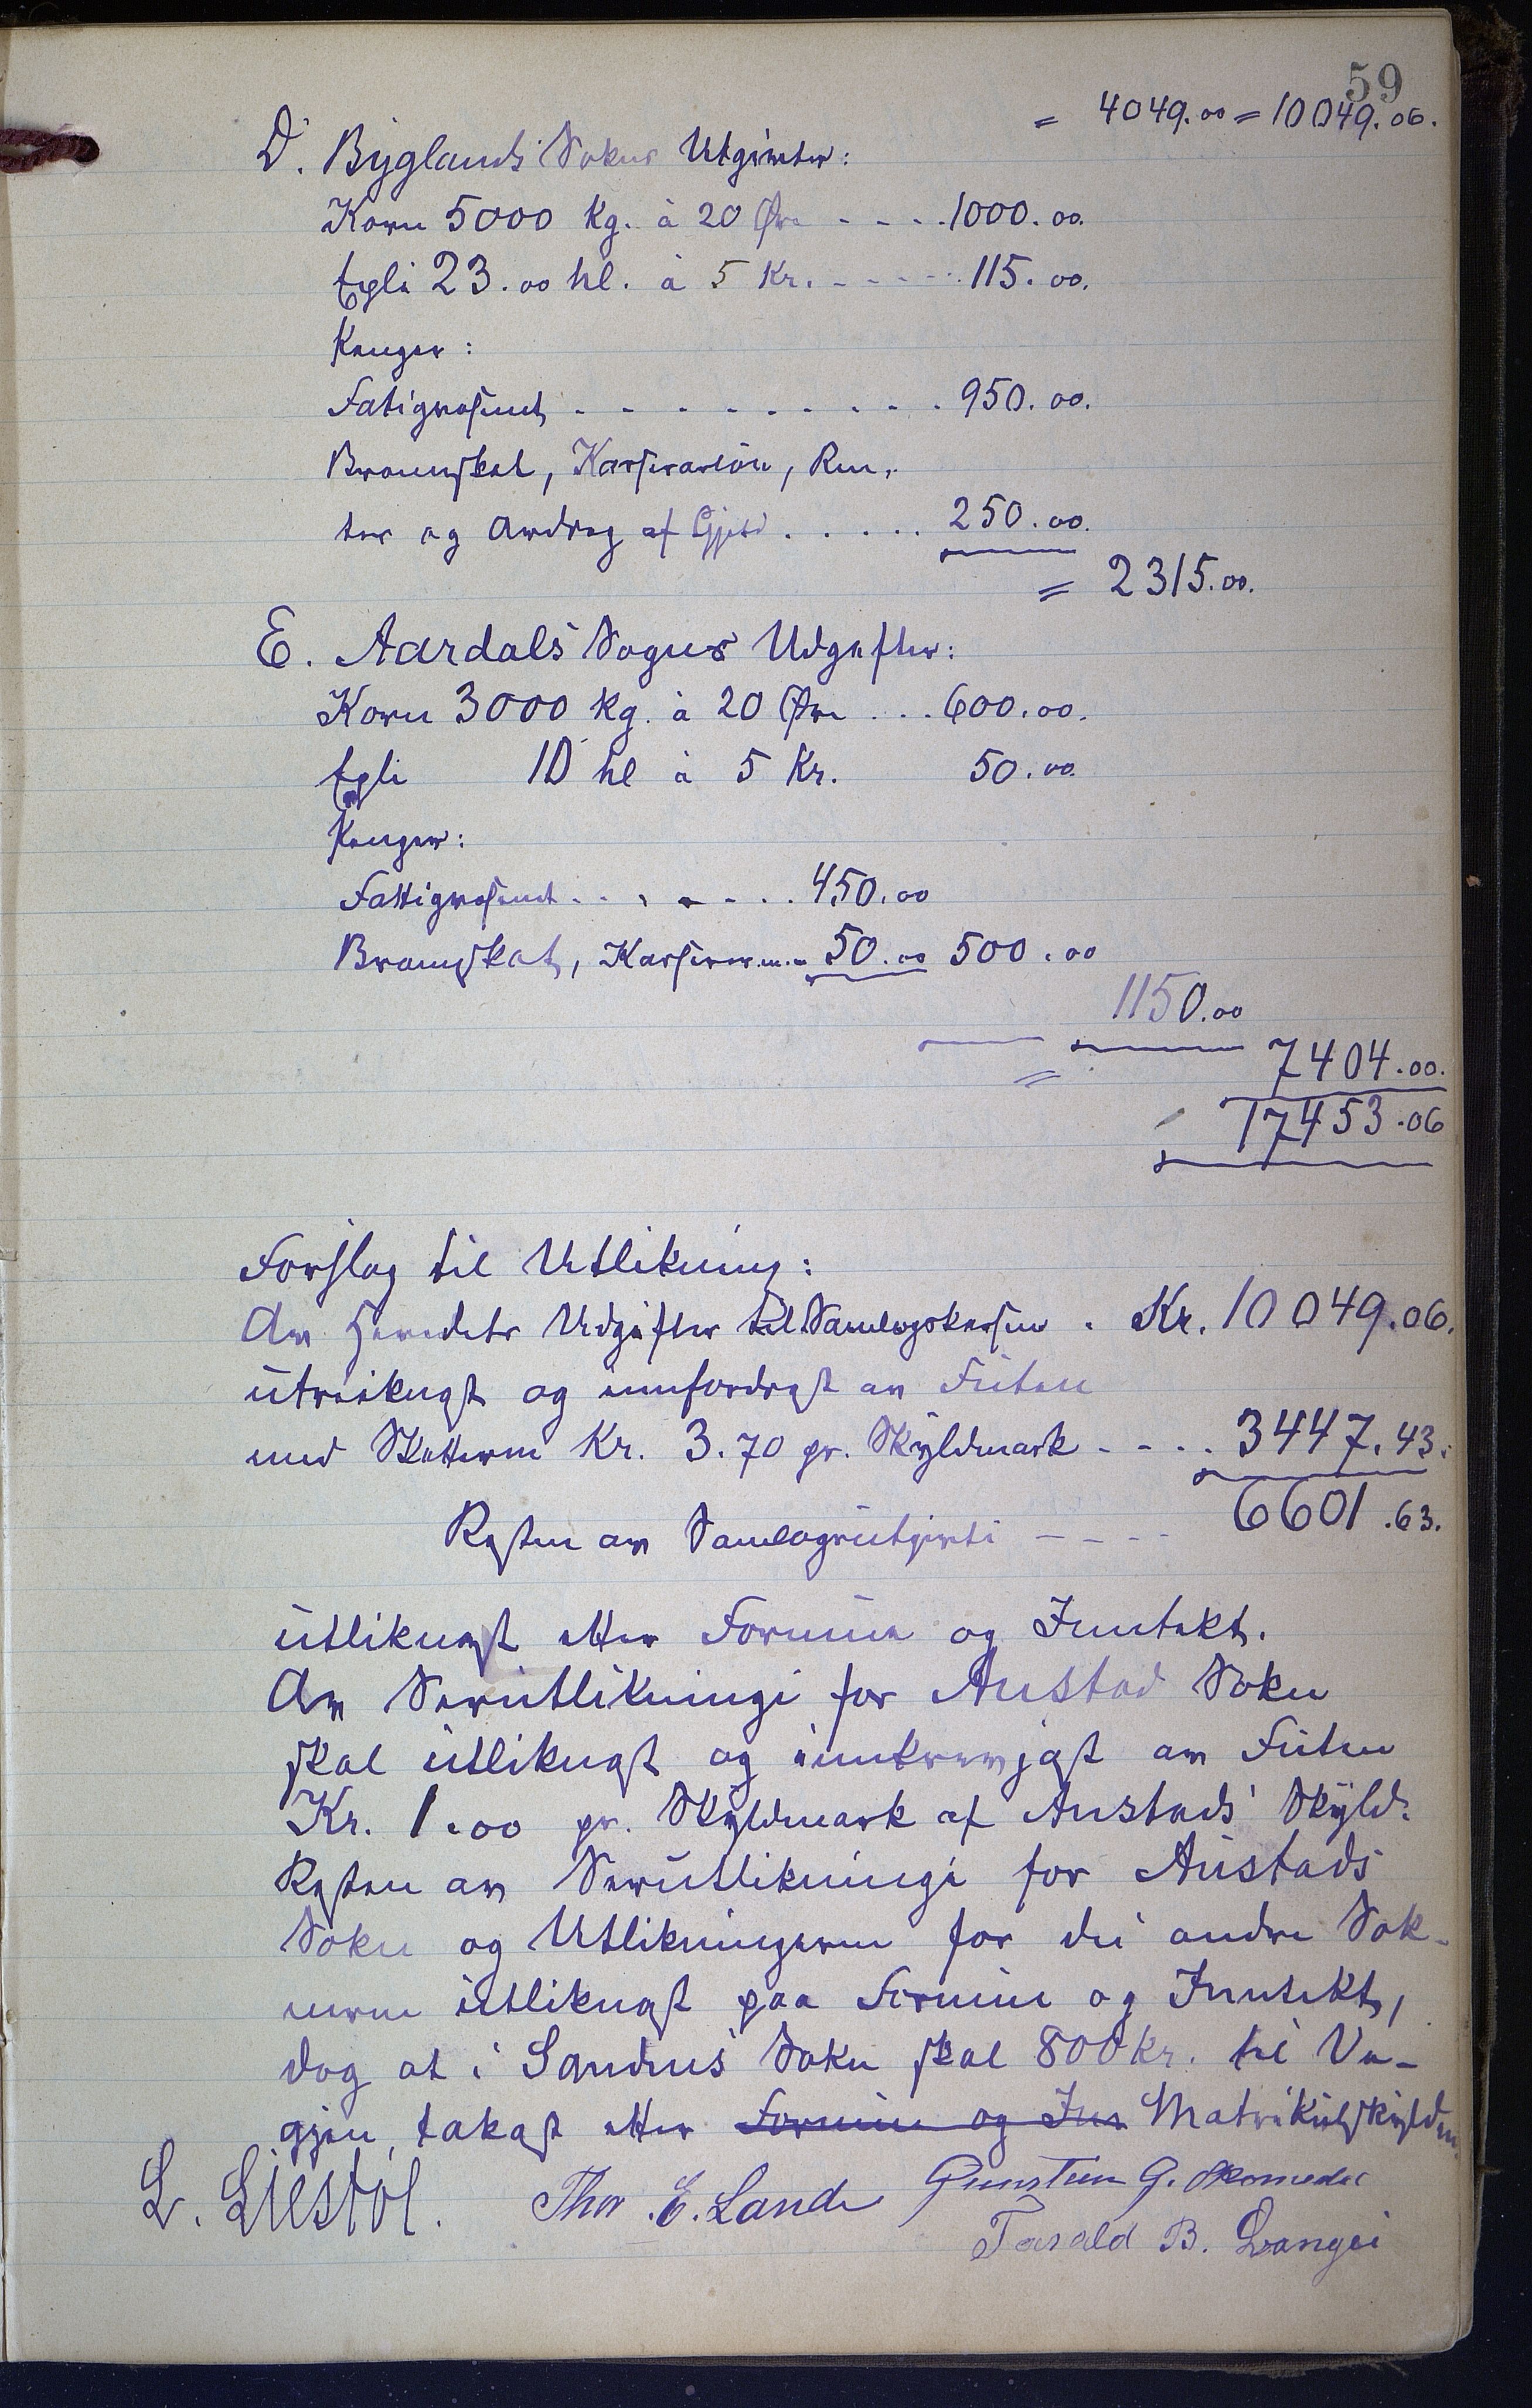 59
= 4049.00 = 10049.06.
D. Byglands Sokns Utgivter:
Korn 5000 Kg. à 20 Øre - - - - 1000.00.
Tysli 23.00 hl. à 5 Kr. - - - - - 115.00.
Pengar:
Fatigvæsenet - - - - - - - - - - 950.00.
Brannskat, Kassirarlön, Ren-
ter og Avdrag af Gjeld . . . . . 250.00.
= 2315.00.
E. Aardals Sogns Udgifter:
Korn 3000 Kg. à 20 Øre . . . 600.00.
10 hl à 5 Kr. 50.00
Pengar:
Fattigvæsenet . . . . - - . . 450.00
Brannskat, Kasserer m.m. 50.00 500.00
1150.00
= 7404.00.
17453.06
Forslag til Utlikning:
Av Heradets Udgifter til Samlagskassen . Kr. 10 049.06.
utreiknast og innfordrast av Futen
med Skatten Kr. 3.70 pr. Skyldmark - - - . 3447.43.
Resten av Samlagsutgivti - - - - 6601.63.
utliknast etter Formue og Inntekt.
Av Serutlikningi for Austad Sokn
skal utliknast og innkrevjast av Futen
Kr. 1.00 pr. Skyldmark af Austads Skyld.
Resten av Serutlikningi for Austads
Sokn og Utlikningarne for dei andre Sok-
nerne utliknast paa Formue og Inntekt,
dog at i Sandnes Sokn skal 800 kr. til Ve-
gjen takast etter Formue og Inn Matrikulskylden
L. Liestöl. Thor .E. Lande Gunstein G. Skomedal
Tarald B. Langei